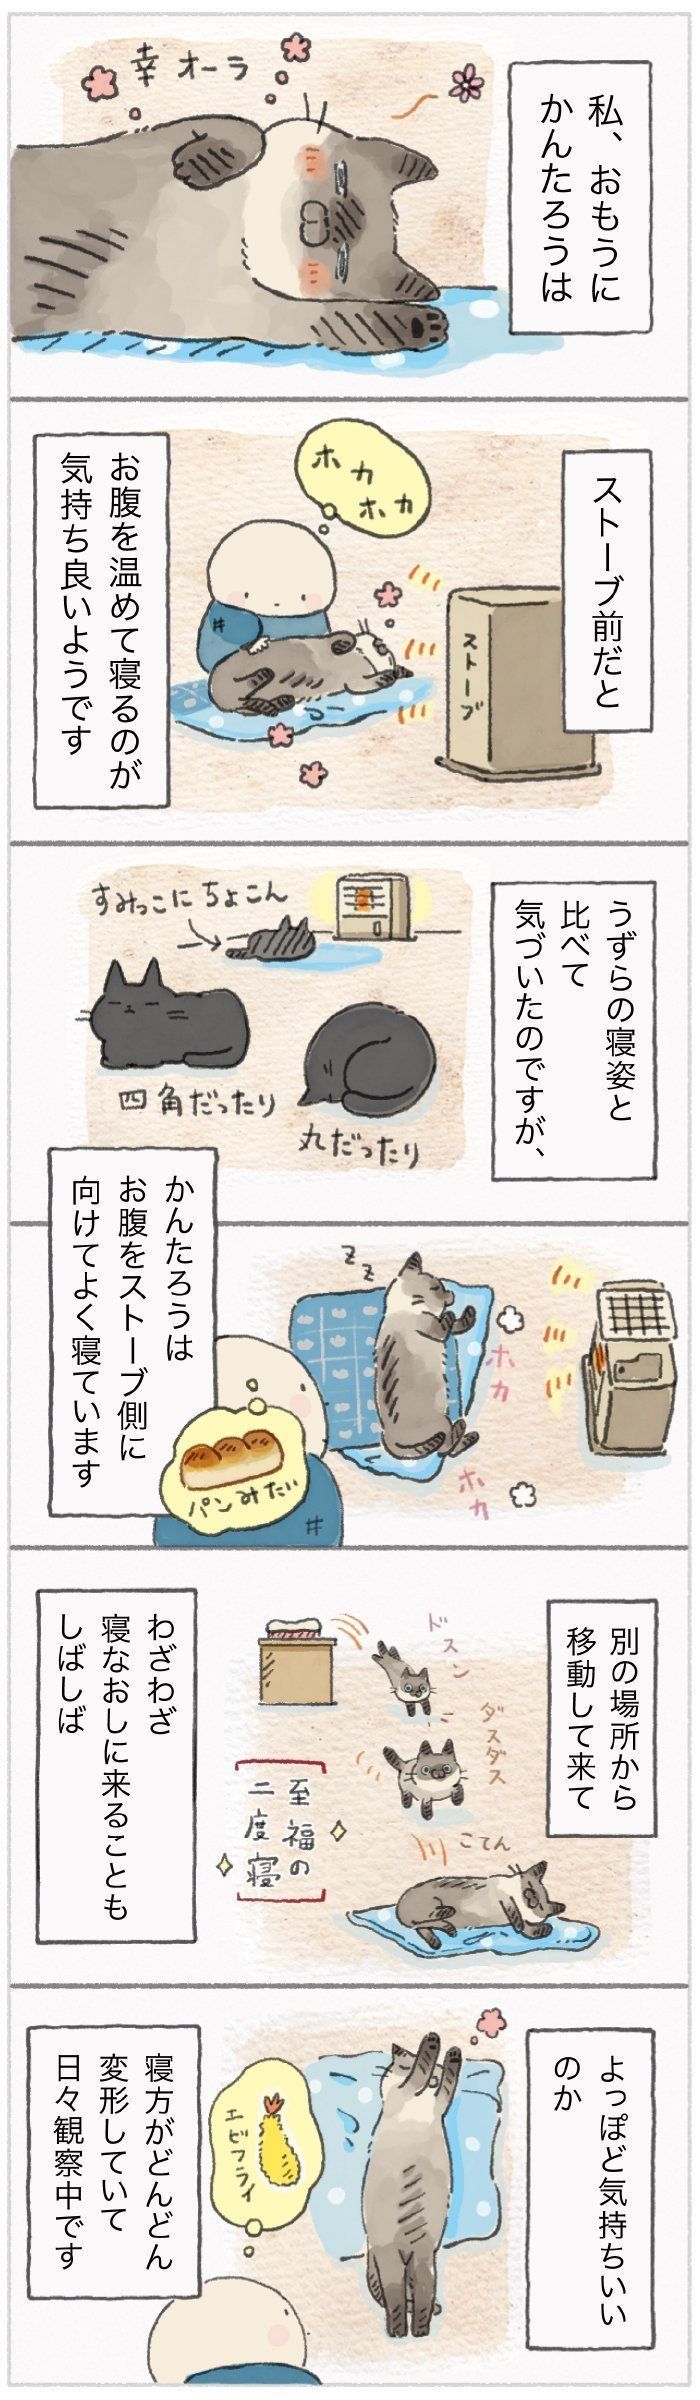 私、おもうに
かんたろうは
幸オーラ
ストーブ前だと
ホカ
ホカ
ストーブ
お腹を温めて寝るのが
気持ち良いようです
うずらの寝姿と
比べて
気づいたのですが、
すみっこにちょこん
四角だったり
丸だったり
かんたろうは
お腹をストーブ側に
向けてよく寝ています
zz
ホカ
ホカ
パンみたい
別の場所から
移動して来て
ドスン
ダスダス
こてん
至福の
二度寝
わざわざ
寝なおしに来ることも
しばしば
よっぽど気持ちいい
のか
エビフライ
寝方がどんどん
変形していて
日々観察中です